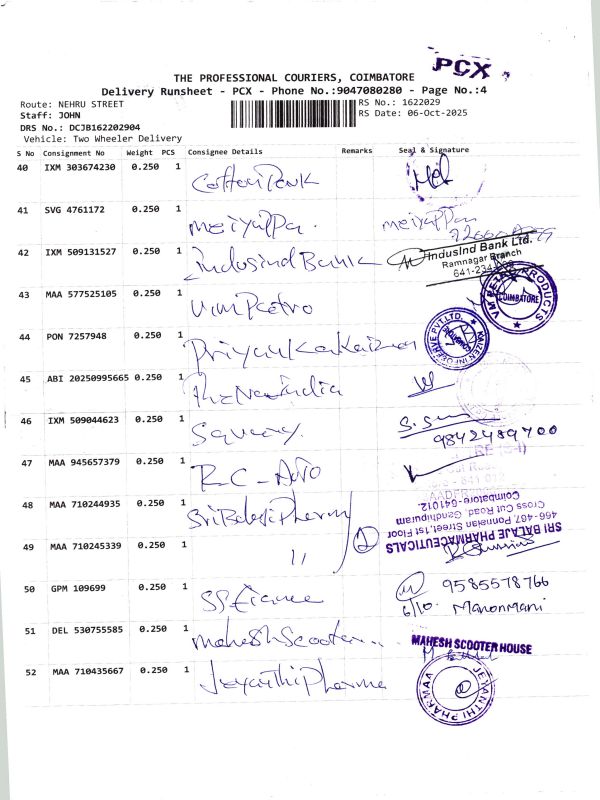 PCX
THE PROFESSIONAL COURIERS, COIMBATORE
Delivery Runsheet - PCX - Phone No.:9047080280 - Page No.:4
Route: NEHRU STREET
RS No.: 1622029
Staff: JOHN
RS Date: 06-Oct-2025
DRS No.: DCJB162202904
Vehicle: Two Wheeler Delivery
S No Consignment No Weight PCS Consignee Details Remarks Seal & Signature
40 IXM 303674230 0.250 1
41 SVG 4761172 0.250 1 Meiyappa.
42 IXM 509131527 0.250 1 Indusind Bank
IndusInd Bank Ltd.
Ramnagar Branch
43 MAA 577525105 0.250 1 Vm Petro
VM PETRO PRODUCTS
COIMBATORE
44 PON 7257948 0.250 1
45 ABI 20250995665 0.250 1 The New India
46 IXM 509044623 0.250 1
9842489700
47 MAA 945657379 0.250 1 RC-Auto
48 MAA 710244935 0.250 1 Sri Balaji Pharmy
SRI BALAJE PHARMACEUTICALS
466-467, Ponnaian Street, 1st Floor
Cross Cut Road, Gandhipuram
Coimbatore-641012.
49 MAA 710245339 0.250 1 11 2
50 GPM 109699 0.250 1 9585578766
6/10 Manonmani
51 DEL 530755585 0.250 1 Mahesh Scooter..
MAHESH SCOOTER HOUSE
52 MAA 710435667 0.250 1 Jeyanthi Pharma
JEYANTHI PHARMAA